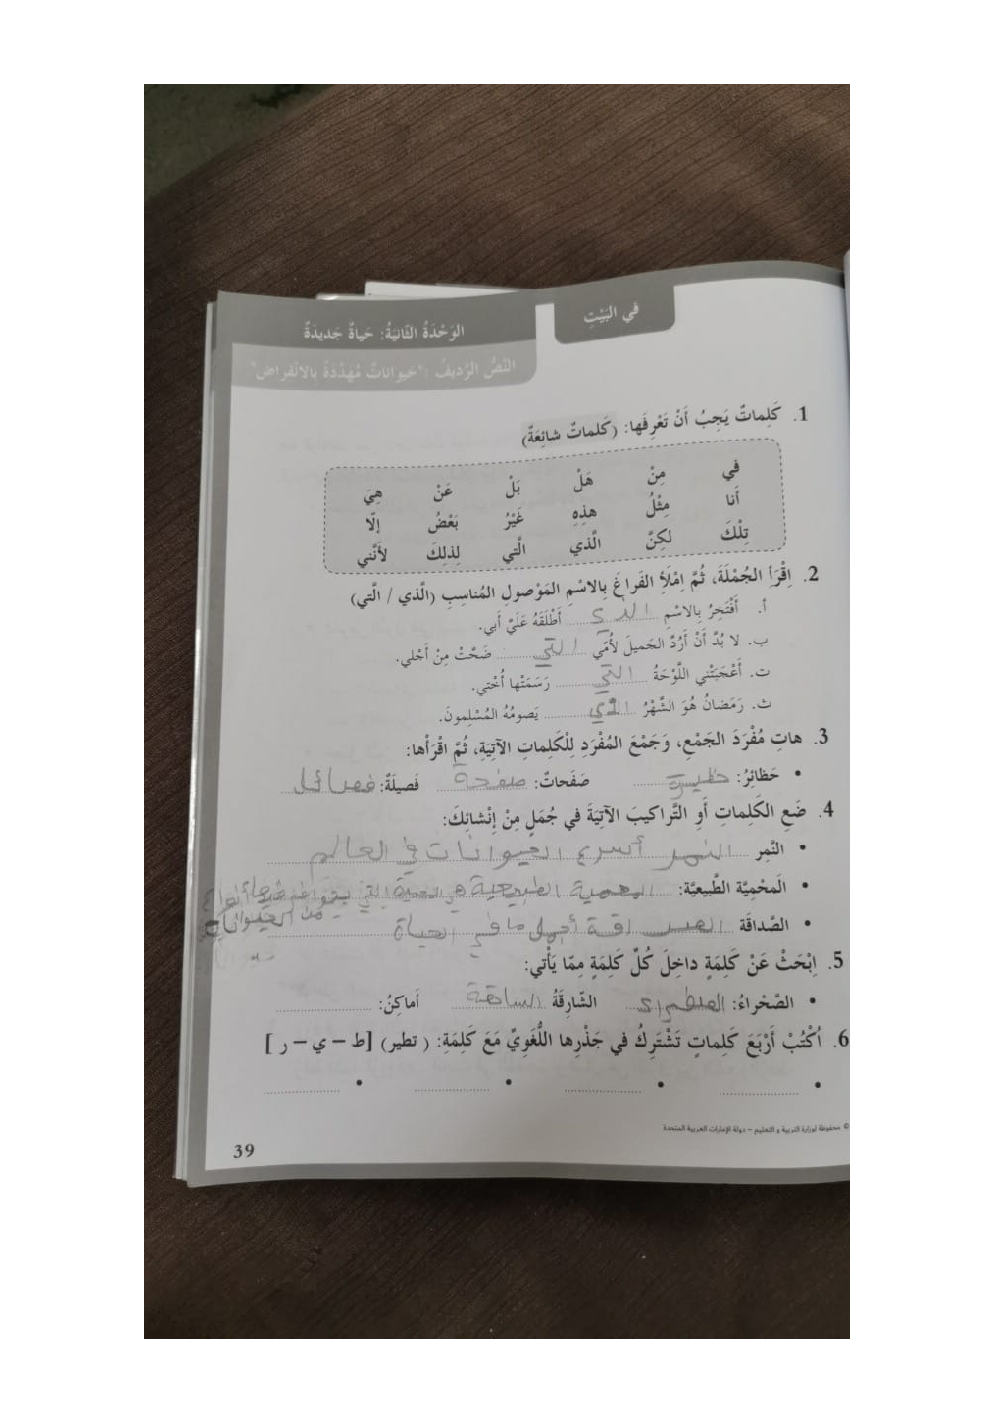 في البَيْتِ
الوَحْدَةُ الثّانِيَةُ: حَياةٌ جَديدَةٌ
النَّصُّ الرَّديفُ: "حَيواناتٌ مُهَدَّدَةٌ بِالانْقِراضِ"
1. كَلِماتٌ يَجِبُ أَنْ تَعْرِفَها: (كَلِماتٌ شائِعَةٌ)
في مِنْ هَلْ بَلْ عَنْ هِيَ
أَنا مِثْلُ هذِهِ غَيْرُ بَعْضُ إلّا
تِلْكَ لكِنَّ الَّذي الَّتي لِذلِكَ لأَنَّني
2. اِقْرَأِ الجُمْلَةَ، ثُمَّ اِمْلَأْ الفَراغَ بِالاسْمِ المَوْصولِ المُناسِبِ (الَّذي / الَّتي)
أ. أَفْتَخِرُ بِالاسْمِ الذي أَطْلَقَهُ عَلَيَّ أَبي.
ب. لا بُدَّ أَنْ أَرُدَّ الجَميلَ لأُمّي التي ضَحَّتْ مِنْ أَجْلي.
ت. أَعْجَبَتْني اللَّوْحَةُ التي رَسَمَتْها أُخْتي.
ث. رَمَضانُ هُوَ الشَّهْرُ الذي يَصومُهُ المُسْلِمونَ.
3. هاتِ مُفْرَدَ الجَمْعِ، وَجَمْعَ المُفْرَدِ لِلْكَلِماتِ الآتِيَةِ، ثُمَّ اقْرَأْها:
• حَظائِرُ: حظيرة صَفَحاتٌ: صفحة فَصيلَةٌ: فصائل
4. ضَعِ الكَلِماتِ أَوِ التَّراكيبَ الآتِيَةَ في جُمَلٍ مِنْ إِنْشائِكَ:
• النَّمِر النمر أسرع الحيوانات في العالم
• المَحْمِيَّة الطَّبيعيَّة: المحمية الطبيعية هي المحمية التي
من الحيوانات
• الصَّداقَة الصداقة أجمل ما في الحياة
5. اِبْحَثْ عَنْ كَلِمَةٍ داخِلَ كُلِّ كَلِمَةٍ مِمّا يَأْتي:
• الصَّحْراءُ: الشّارِقَةُ أَماكِنُ:
6. اُكْتُبْ أَرْبَعَ كَلِماتٍ تَشْتَرِكُ في جَذْرِها اللُّغَوِيِّ مَعَ كَلِمَةِ: (تطير) [ط – ي – ر]
© محفوظة لوزارة التربية و التعليم – دولة الإمارات العربية المتحدة
39